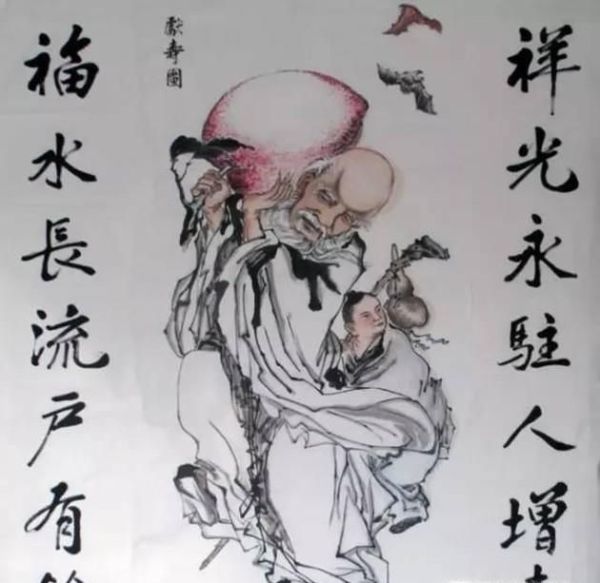 祥光永駐人增
獻壽圖
福水長流戶有